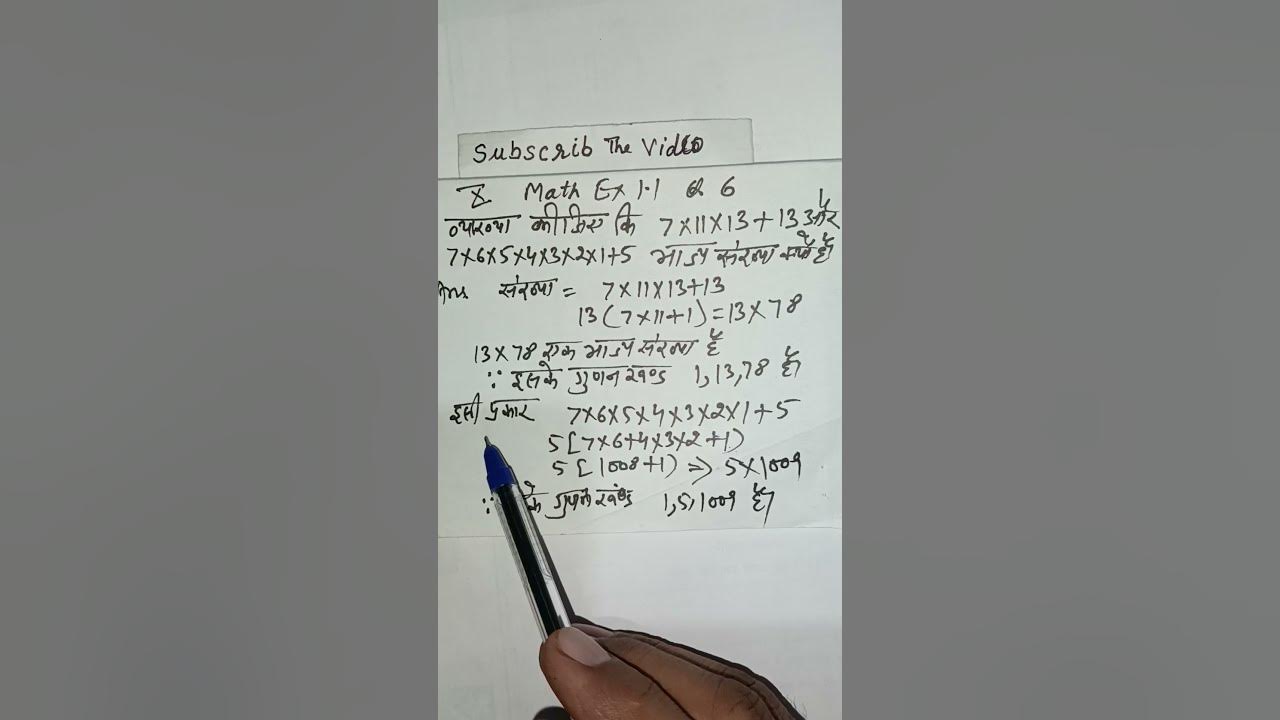 Subscrib The Video
X Math Ex 1.1 Q 6
व्याख्या कीजिए कि 7×11×13+13 और
7×6×5×4×3×2×1+5 भाज्य संख्या क्यों है।
संख्या = 7×11×13+13
13(7×11+1)=13×78
13×78 एक भाज्य संख्या है
∵ इसके गुणन खण्ड 1,13,78 है।
इसी प्रकार 7×6×5×4×3×2×1+5
5[7×6+4×3×2+1)
5[1008+1) => 5×1009
∵ के गुणन खण्ड 1,5,1009 है।